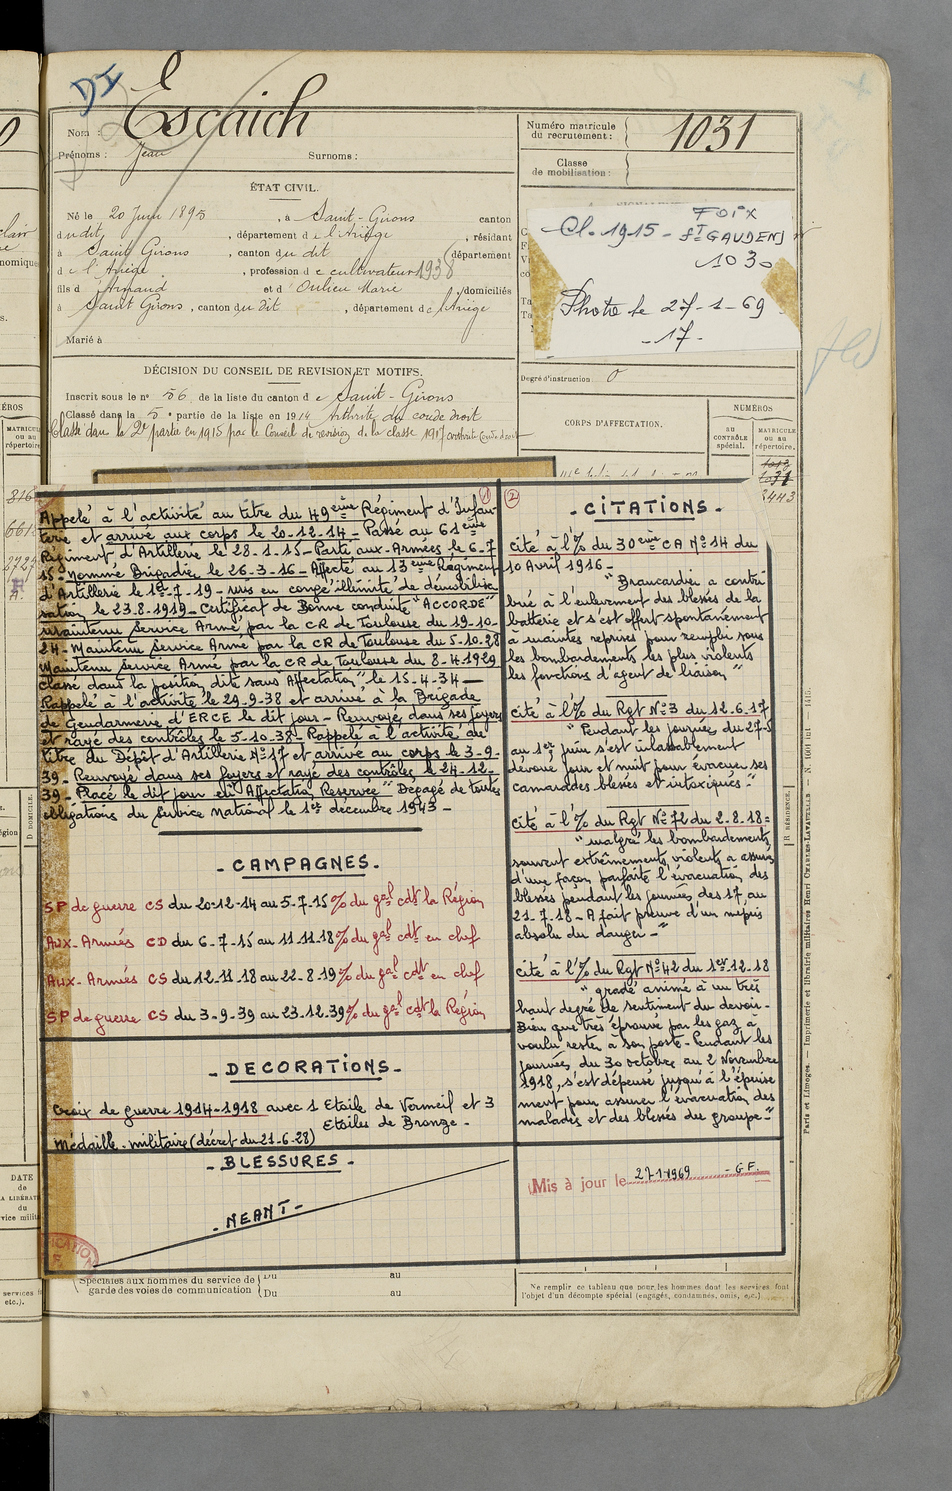 DI
Nom : Escaich
Prénoms : Jean Surnoms :
Numéro matricule du recrutement : 1031
Classe de mobilisation :
ÉTAT CIVIL.
Né le 20 Juin 1895, à Saint-Girons canton
dudit, département de l'Ariège, résidant
à Saint Girons, canton du dit département
de l'Ariège, profession de cultivateur 1938
fils d'Arnaud et d'Oulieu Marie domiciliés
à Saint Girons, canton du dit, département de l'Ariège
Marié à
Cl. 1915 - FOIX
St GAUDENS
1030
Photo le 27-1-69
-17-
DÉCISION DU CONSEIL DE REVISION ET MOTIFS.
Inscrit sous le n° 56 de la liste du canton de Saint-Girons
Classé dans la 5e partie de la liste en 1914 Arthrite du coude droit
Classé dans la 2e partie en 1915 par le Conseil de revision de la classe 1917 arthrite coude droit
Degré d'instruction : 0
CORPS D'AFFECTATION.
NUMÉROS
AU CONTRÔLE spécial.
MATRICULE ou au répertoire.
1031
3443
①
Appelé à l'activité au titre du 49ème Régiment d'Infan-
terie et arrivé aux corps le 20-12-14 - Passé au 61ème
Régiment d'Artillerie le 28-1-15 - Parti aux-Armées le 6-7
15 - Nommé Brigadier le 26-3-16 - Affecté au 13ème Régiment
d'Artillerie le 1er-7-19 - mis en congé "illimité" de démobilisa
sation le 23.8-1919 - Certificat de Bonne conduite "ACCORDÉ"
Maintenu Service Armé par la CR de Toulouse du 19-10-
24 - Maintenu Service Armé par la CR de Toulouse du 5-10-28
Maintenu Service Armé par la CR de Toulouse du 8-4-1929
classé dans la position dite sans Affectation" le 15-4-34 -
Rappelé à l'activité le 29-9-38 et arrivé à la Brigade
de Gendarmerie d'ERCE le dit jour - Renvoyé dans ses foyers
et rayé des contrôles le 5-10-38 - Rappelé à l'activité au
titre du Dépôt d'Artillerie N°17 et arrivé au corps le 3-9-
39 - Renvoyé dans ses foyers et rayé des contrôles le 24-12-
39 - Placé le dit jour en "Affectation Réservée" Dégagé de toutes
obligations du Service National le 1er décembre 1943 -
- CAMPAGNES -
SP de guerre CS du 20-12-14 au 5-7-15 % du gal cdt la Région
Aux-Armées CD du 6-7-15 au 11-11-18 % du gal cdt en chef
Aux-Armées CS du 12-11-18 au 22-8-19 % du gal cdt en chef
SP de guerre CS du 3-9-39 au 23-12-39 % du gal cdt la Région
- DECORATIONS -
Croix de guerre 1914-1918 avec 1 Etoile de Vermeil et 3
Etoiles de Bronze -
Médaille militaire (décret du 21-6-28)
- BLESSURES -
- NEANT -
②
- CITATIONS -
Cité à l'% du 30ème CA N°14 du
10 Avril 1916 -
"Brancardier a contri
bué à l'enlèvement des blessés de la
batterie et s'est offert spontanément
à maintes reprises pour remplir sous
les bombardements les plus violents
les fonctions d'agent de liaison"
Cité à l'% du Rgt N°3 du 12-6-17
"Pendant les journées du 27-5
au 1er Juin s'est inlassablement
dévoué jour et nuit pour évacuer ses
camarades blessés et intoxiqués -"
Cité à l'% du Rgt N°72 du 2-8-18 =
"malgré les bombardements
souvent extrêmements violents a assuré
d'une façon parfaite l'évacuation des
blessés pendant les journées des 17 au
21-7-18 - A fait preuve d'un mépris
absolu du danger -"
Cité à l'% du Rgt N°42 du 1er-12-18
"gradé animé à un très
haut degré de sentiment du devoir -
Bien que très éprouvé par les gaz a
voulu rester à son poste - Pendant les
journées du 30 octobre au 2 Novembre
1918, s'est dépensé jusqu'à l'épuise
ment pour assurer l'évacuation des
malades et des blessés du groupe -"
Mis à jour le 27-1-1969 - G.F.
Spéciales aux hommes du service de garde des voies de communication
Du au
Du au
Ne remplir ce tableau que pour les hommes dont les services font
l'objet d'un décompte spécial (engagés, condamnés, omis, etc.)
Paris et Limoges. — Imprimerie et librairie militaires Henri CHARLES-LAVAUZELLE
D. DOMICILE.
R. RÉSIDENCE.